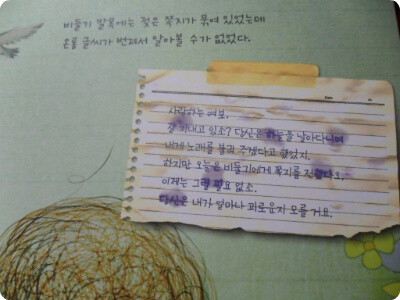 비둘기 발목에는 젖은 쪽지가 묶여 있었는데
온통 글씨가 번져서 알아볼 수가 없었다.
사랑하는 여보.
잘 지내고 있소? 당신은 하늘을 날아다니며
내게 노래를 불러 주겠다고 했었지.
하지만 오늘은 비둘기에게 쪽지를 전했다오.
이제는 그럴 필요 없소.
당신은 내가 얼마나 괴로운지 모를 거요.